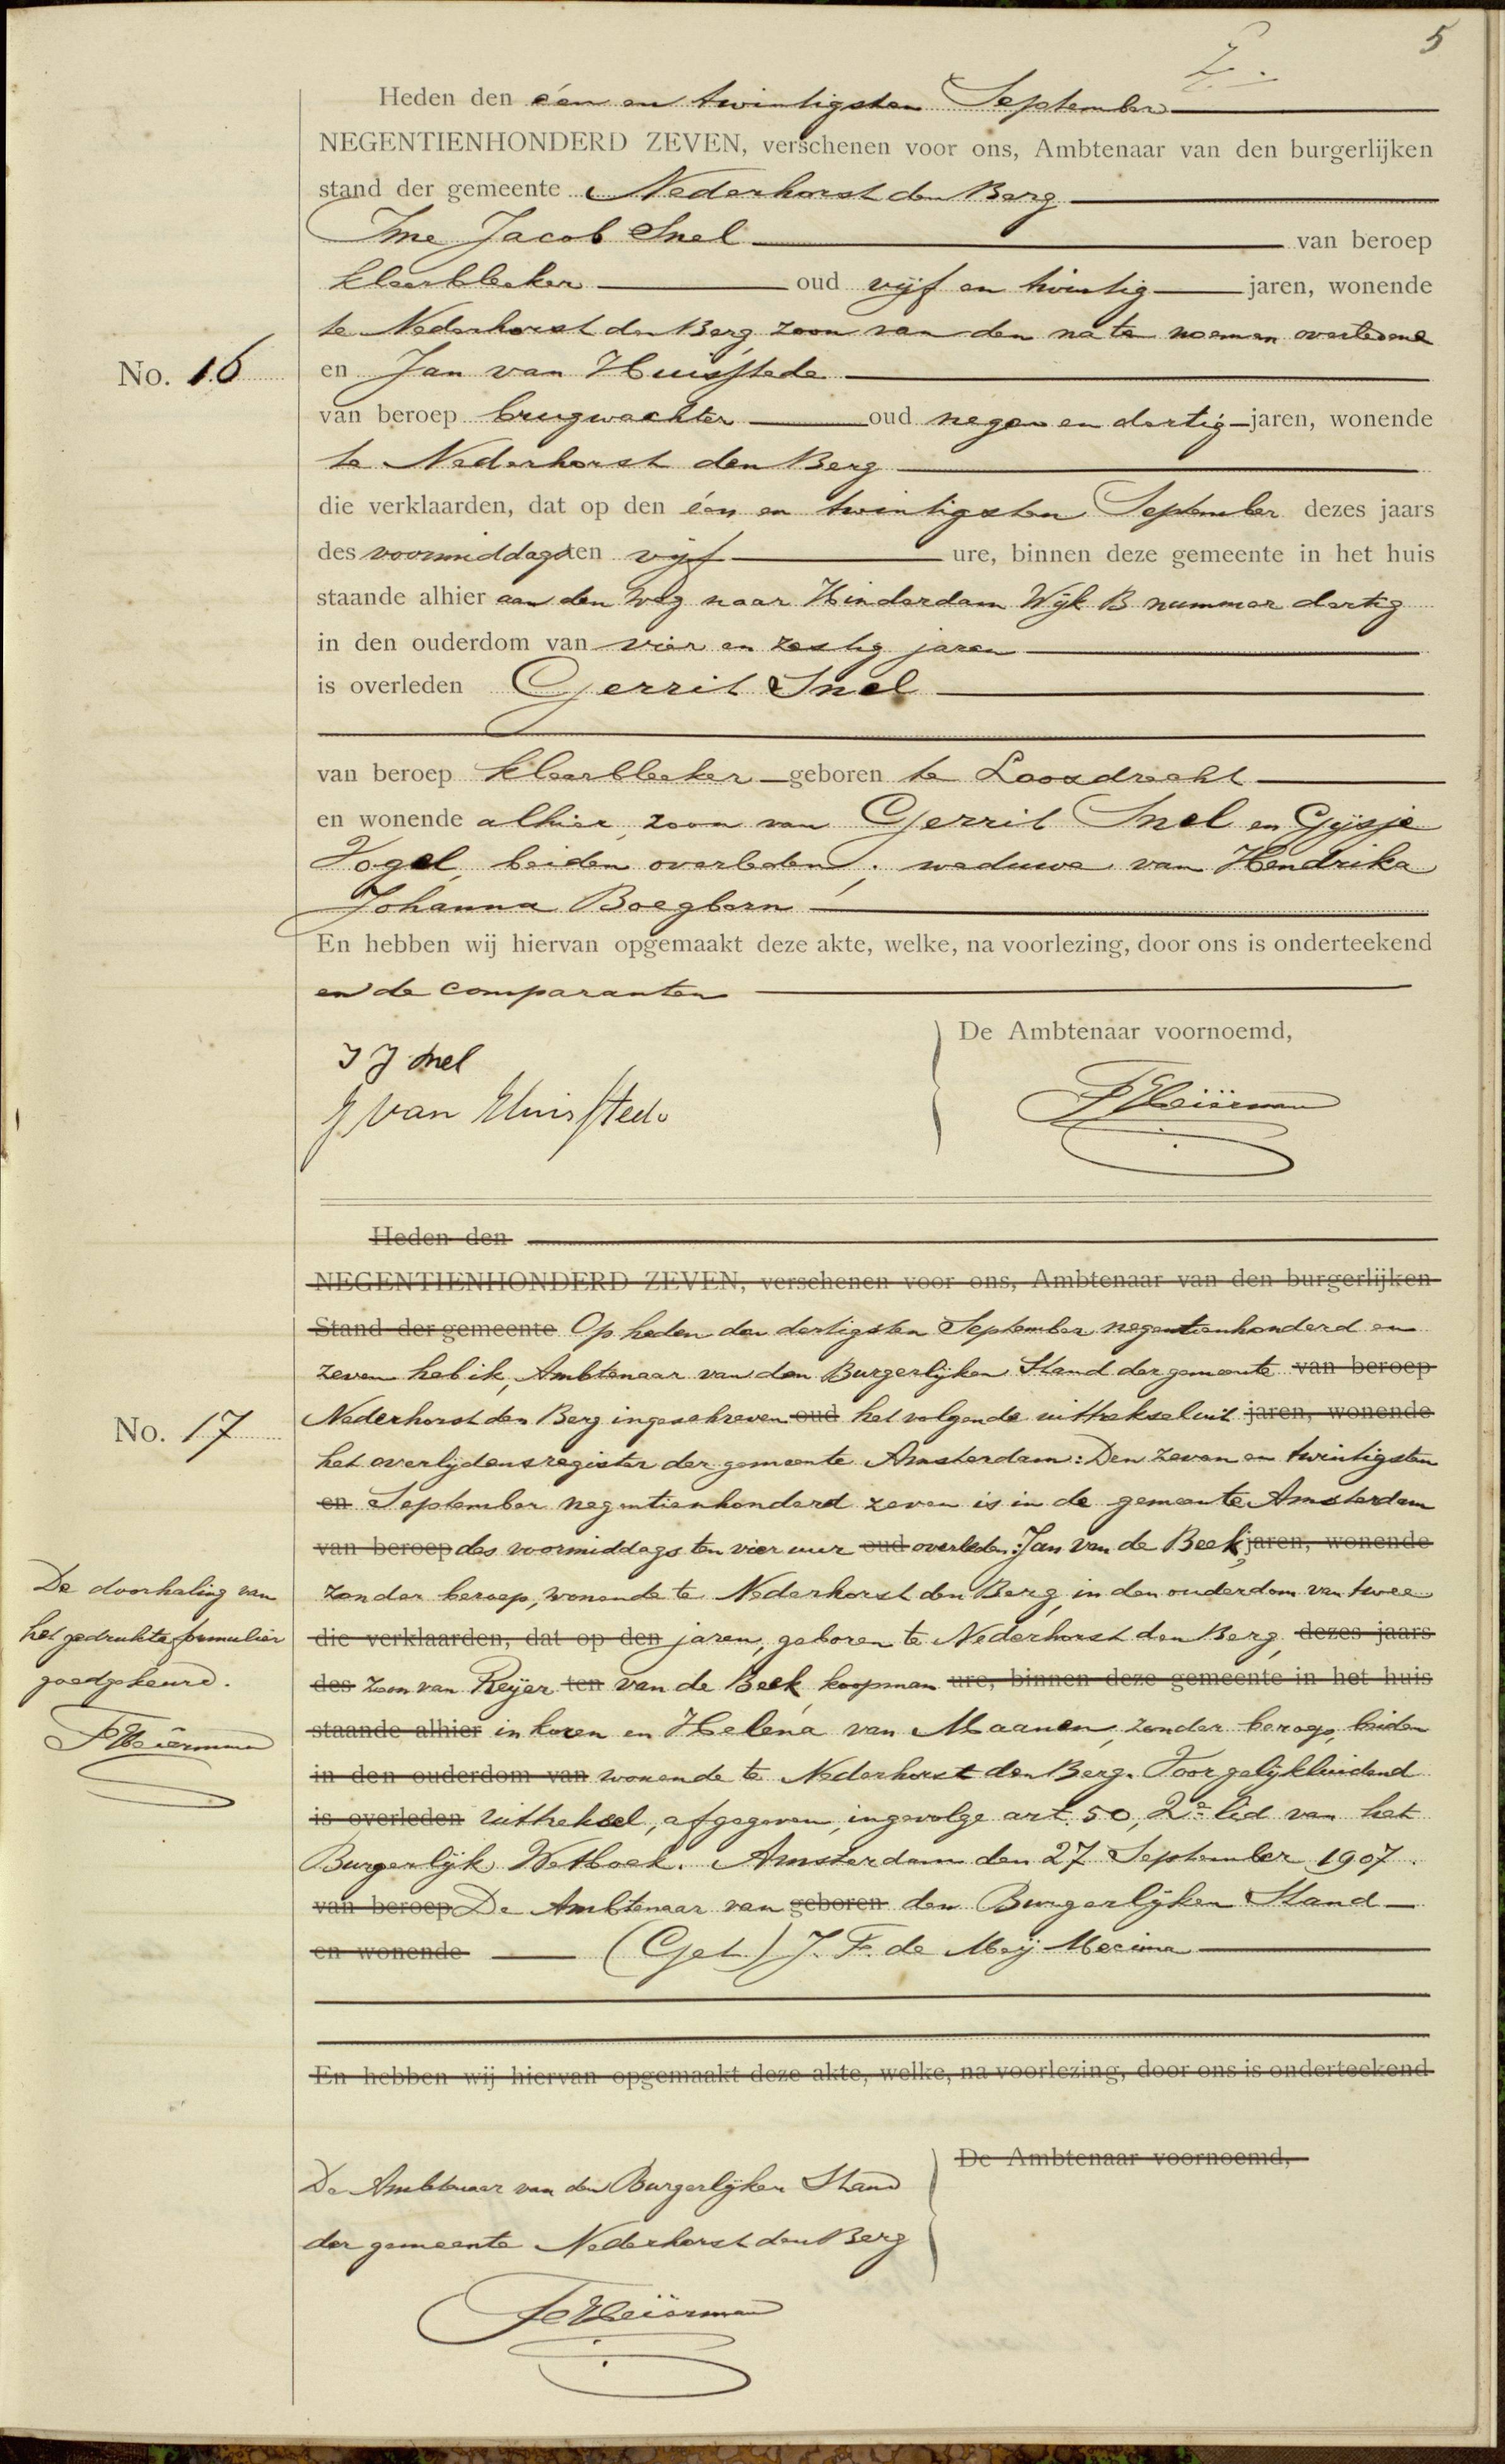 5
Heden den één en twintigsten September
NEGENTIENHONDERD ZEVEN, verschenen voor ons, Ambtenaar van den burgerlijken
stand der gemeente Nederhorst den Berg
Ime Jacob Snel van beroep
kleerbleeker oud vijf en twintig jaren, wonende
te Nederhorst den Berg, zoon van den na te noemen overledene
No. 16
en Jan van Huisstede
van beroep brugwachter oud negen en dertig jaren, wonende
te Nederhorst den Berg
die verklaarden, dat op den één en twintigsten September dezes jaars
des voormiddags ten vijf ure, binnen deze gemeente in het huis
staande alhier aan den Weg naar Hinderdam Wijk B nummer dertig
in den ouderdom van vier en zestig jaren
is overleden Gerrit Snel
van beroep kleerbleeker geboren te Loosdrecht
en wonende alhier, zoon van Gerrit Snel en Gijsje
Vogel, beiden overleden; weduwe van Hendrika
Johanna Boegborn
En hebben wij hiervan opgemaakt deze akte, welke, na voorlezing, door ons is onderteekend
en de comparanten
De Ambtenaar voornoemd,
I J Snel
J van Huisstede
Heden den
NEGENTIENHONDERD ZEVEN, verschenen voor ons, Ambtenaar van den burgerlijken
Stand der gemeente Op heden den dertigsten September negentienhonderd en
zeven heb ik, Ambtenaar van den Burgerlijken Stand der gemeente van beroep
No. 17
Nederhorst den Berg ingeschreven oud het volgende uittreksel uit jaren, wonende
het overlijdensregister der gemeente Amsterdam: Den zeven en twintigsten
en September negentienhonderd zeven is in de gemeente Amsterdam
van beroep des voormiddags ten vier uur oud overleden: Jan van de Beek, jaren, wonende
zonder beroep, wonende te Nederhorst den Berg, in den ouderdom van twee
die verklaarden, dat op den jaren, geboren te Nederhorst den Berg, dezes jaars
des zoon van Reijer ten van de Beek, koopman ure, binnen deze gemeente in het huis
staande alhier in koren en Helena van Maanen, zonder beroep, beiden
in den ouderdom van wonende te Nederhorst den Berg. Voor gelijkluidend
is overleden uittreksel, afgegeven, ingevolge art. 50, 2e lid van het
Burgerlijk Wetboek. Amsterdam den 27 September 1907.
van beroep De Ambtenaar van geboren den Burgerlijken Stand
en wonende (Get.) J. F. de Meij Mecima
De doorhaling van
het gedrukte formulier
goedgekeurd.
En hebben wij hiervan opgemaakt deze akte, welke, na voorlezing, door ons is onderteekend
De Ambtenaar voornoemd,
De Ambtenaar van den Burgerlijken Stand
der gemeente Nederhorst den Berg